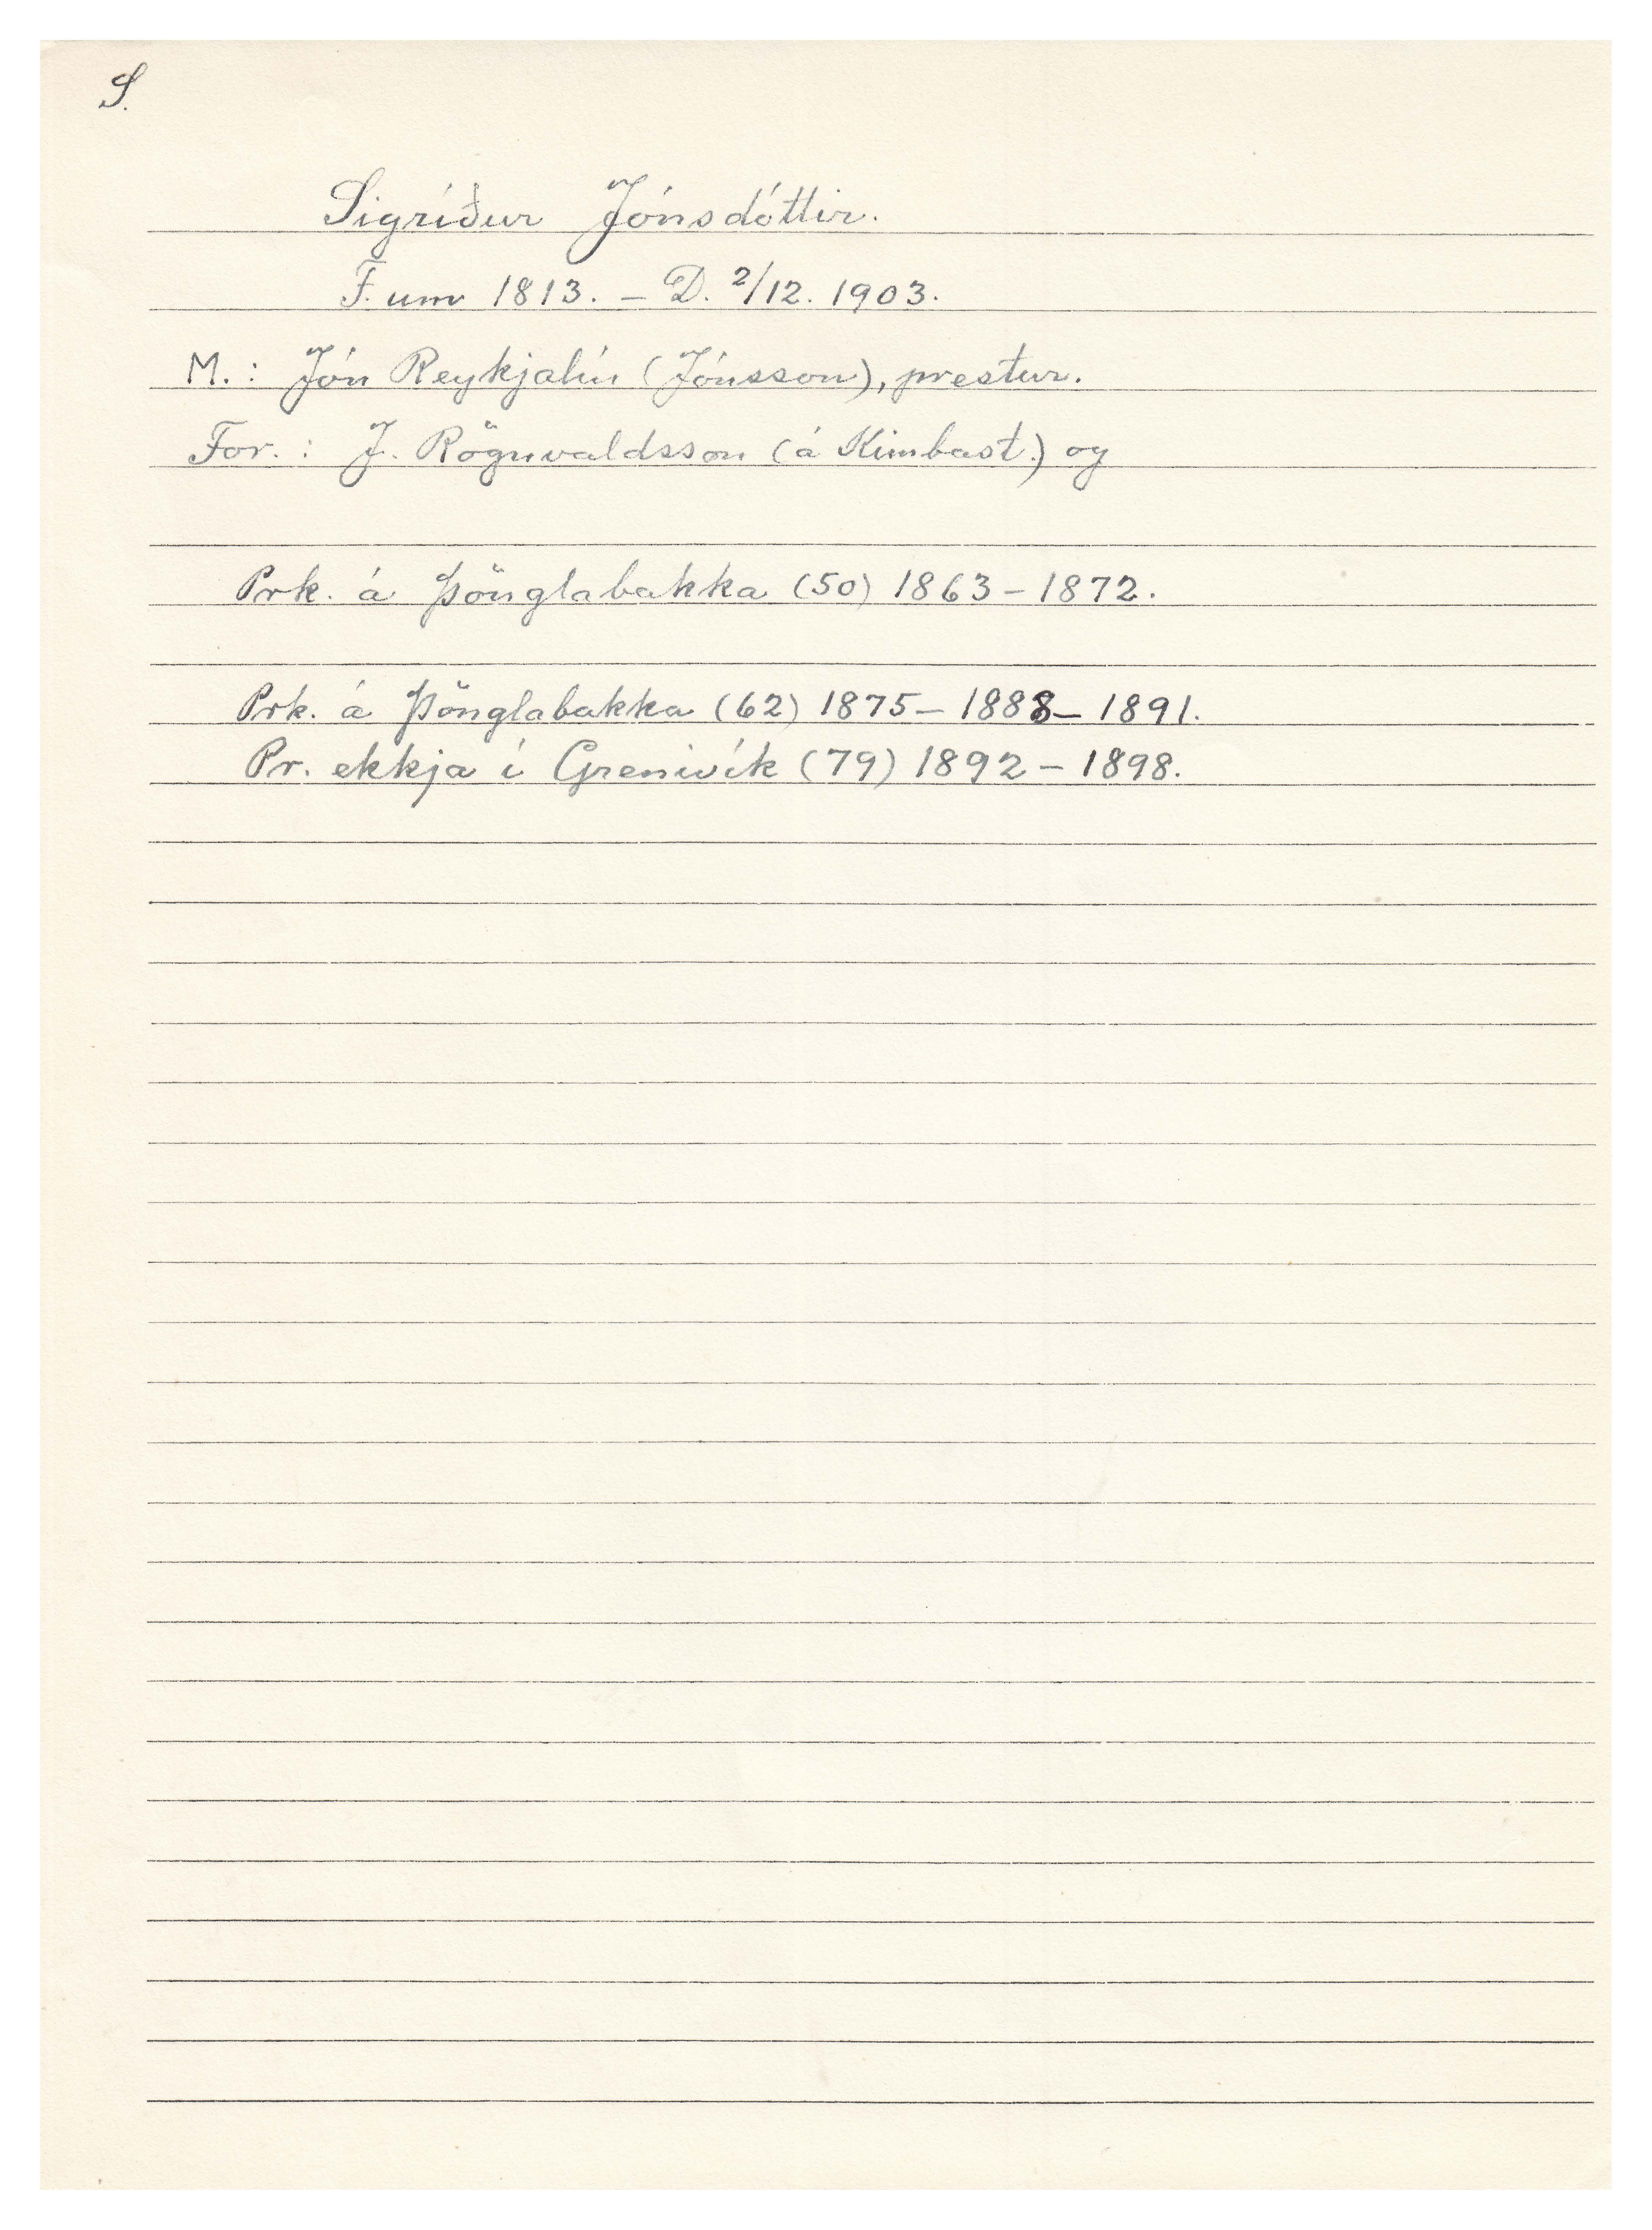 S.
Sigríður Jónsdóttir.
F. um 1813. – D. 2/12. 1903.
M.: Jón Reykjalín (Jónsson), prestur.
For.: J. Rögnvaldsson (á Kimbast.) og
Prk. á Þönglabakka (50) 1863–1872.
Prk. á Þönglabakka (62) 1875–1888–1891.
Pr. ekkja í Grenivík (79) 1892–1898.